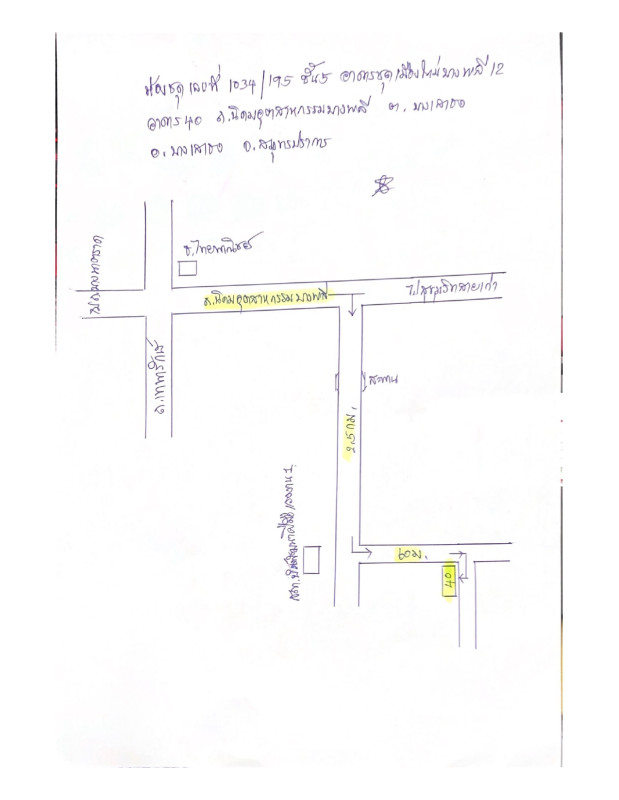 ห้องชุด เลขที่ 1034/195 ชั้น5 อาคารชุดเมืองใหม่บางพลี 12
อาคาร 40 ถ.นิคมอุตสาหกรรมบางพลี ต. บางเสาธง
อ. บางเสาธง จ.สมุทรปราการ
ธ.ไทยพาณิชย์
ถ.นิคมอุตสาหกรรมบางพลี
ไปสุขุมวิทสายเก่า
ถ.เทพารักษ์
สะพาน
2.5 กม.
โรงงาน 1
60 ม.
40